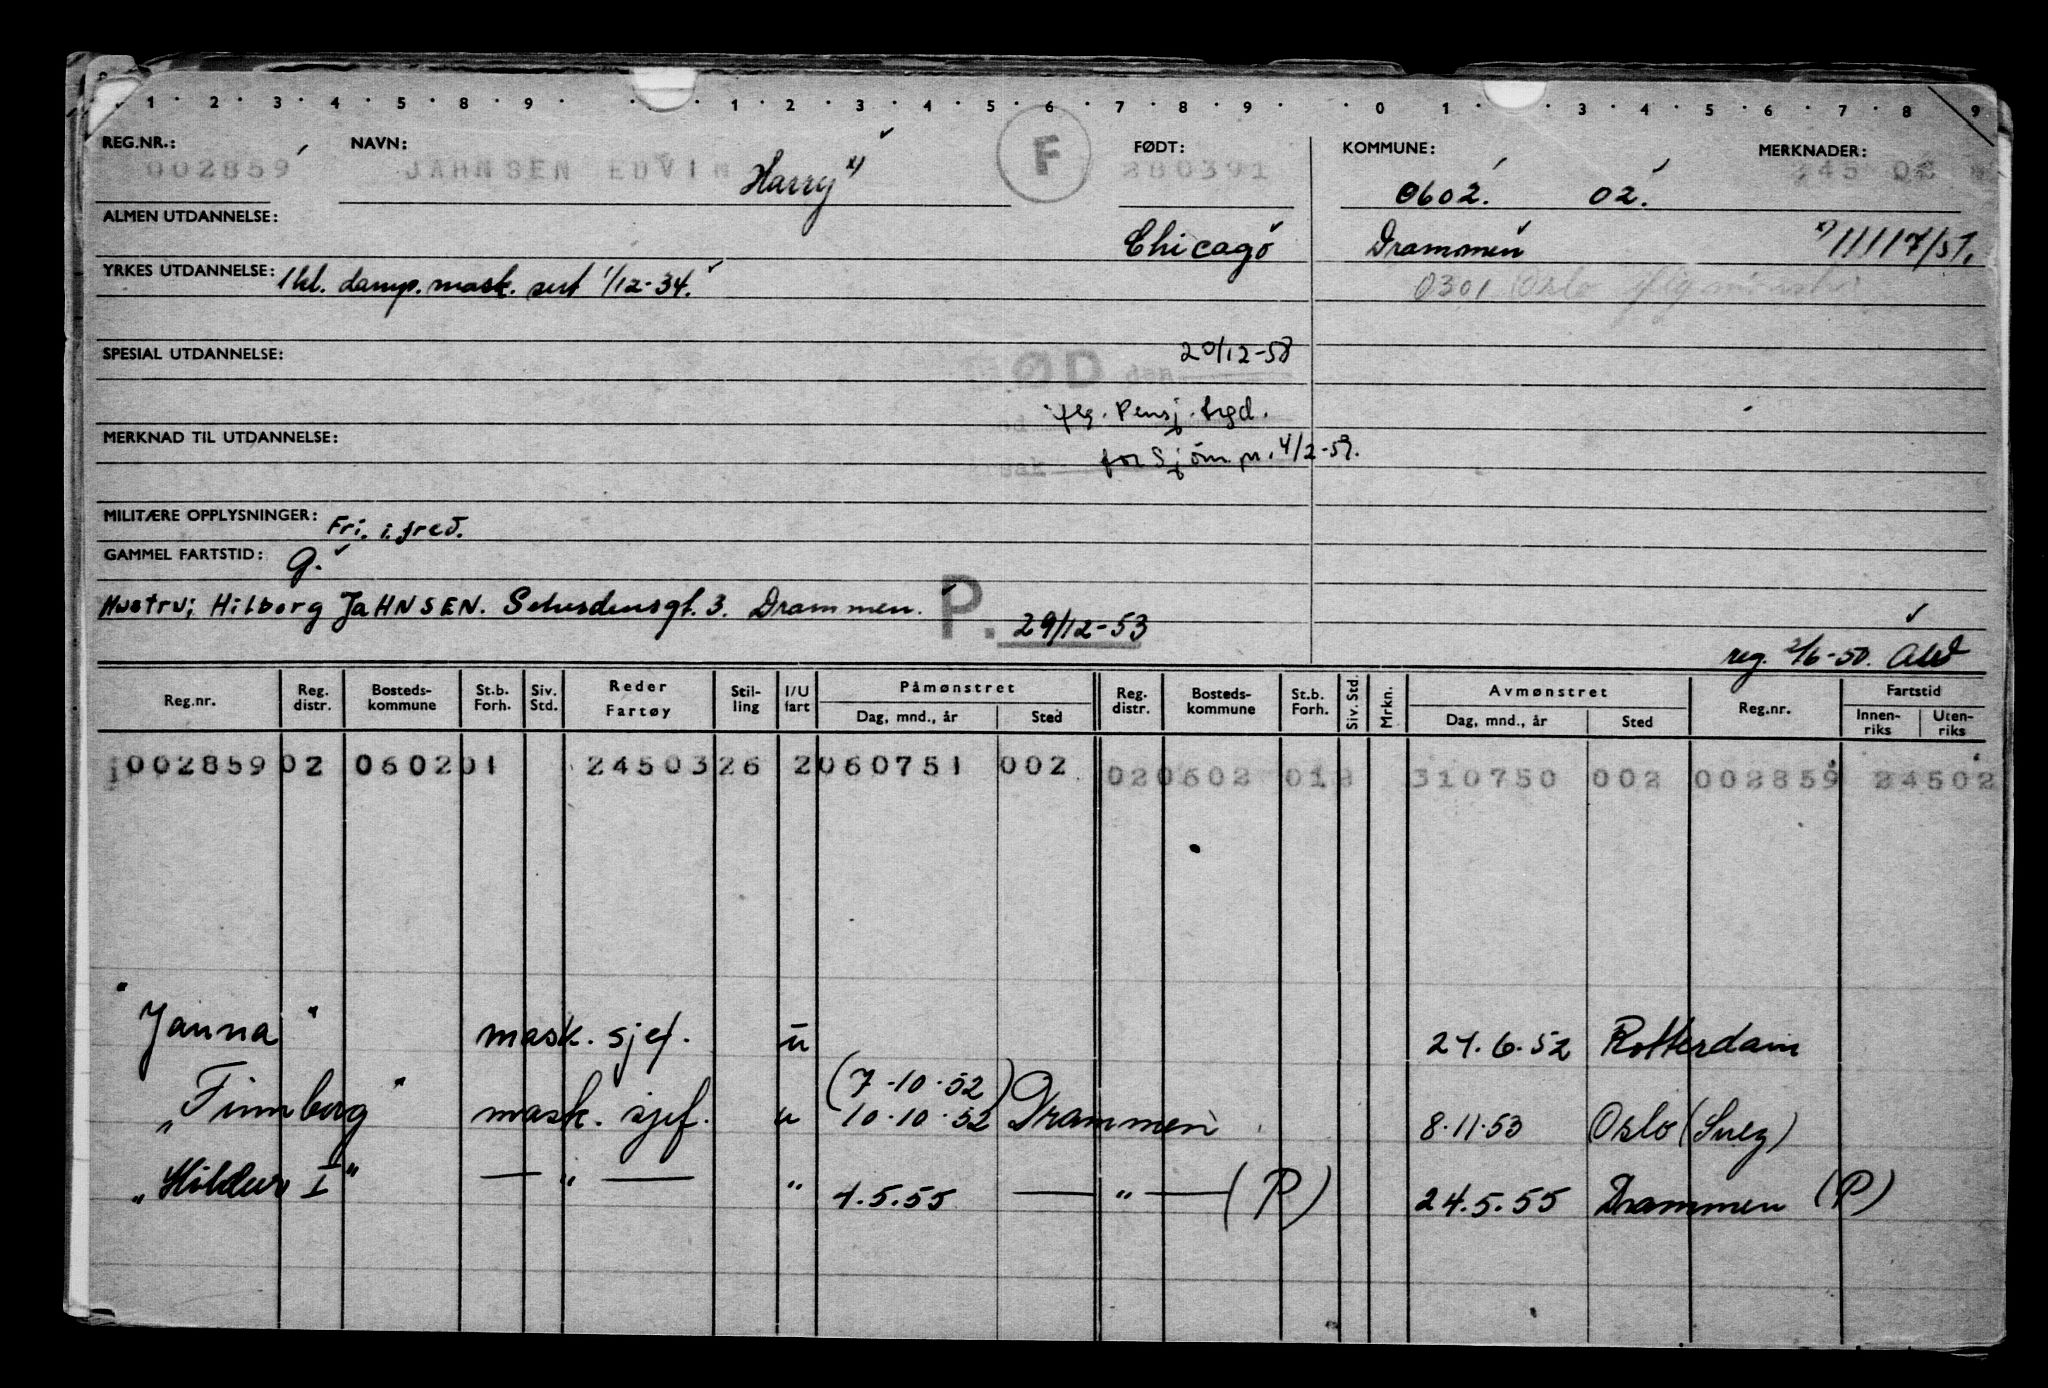 1 2 3 4 5 8 9 1 2 3 4 5 6 7 8 9 0 1 3 4 5 6 7 8 9
REG.NR.: NAVN: FØDT: KOMMUNE: MERKNADER:
002859 JAHNSEN EDVIN Harry x) F 280391 0602. 02. 245 02
ALMEN UTDANNELSE: Chicago Drammen x) 11117/57.
YRKES UTDANNELSE: 1 kl. damp. mask. sert 1/12-34. 0301 Oslo
SPESIAL UTDANNELSE: DØD den 20/12-58
flg. Pensj. tryd.
MERKNAD TIL UTDANNELSE: for Sjøm. pr. 4/2-59.
MILITÆRE OPPLYSNINGER: Fri. i. fred.
GAMMEL FARTSTID: g.
Hustru; Hilborg JAHNSEN. 3. Drammen. P. 29/12-53
reg. 2/6-50.
Reg.nr. Reg. distr. Bosteds-kommune St.b. Forh. Siv. Std. Reder Fartøy Stil-ling I/U fart Påmønstret Dag, mnd., år Sted Reg. distr. Bosteds-kommune St.b. Forh. Siv. Std. Mrkn. Avmønstret Dag, mnd., år Sted Reg.nr. Fartstid Innen-riks Uten-riks
002859 02 0602 01 24503 26 2 060751 002 02 0602 01 310750 002 002859 24502
"Janna" mask. sjef. u 21.6.52 Rotterdam
(7-10-52)
"Finnborg" mask. sjef. u 10-10-52 Drammen 8.11.53 Oslo (Suez)
"Hildur I" — " — " 1.5.55 — " — (P) 24.5.55 Drammen (P)